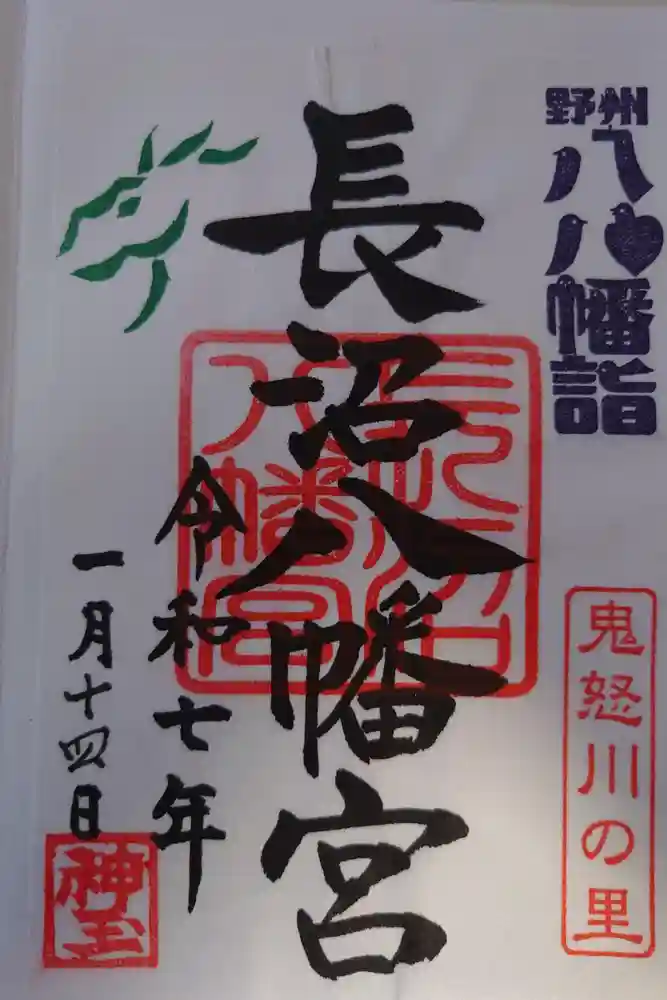 野州
八八幡詣
鬼怒川の里
長沼八幡宮
長沼
八幡宮
令和七年
一月十四日